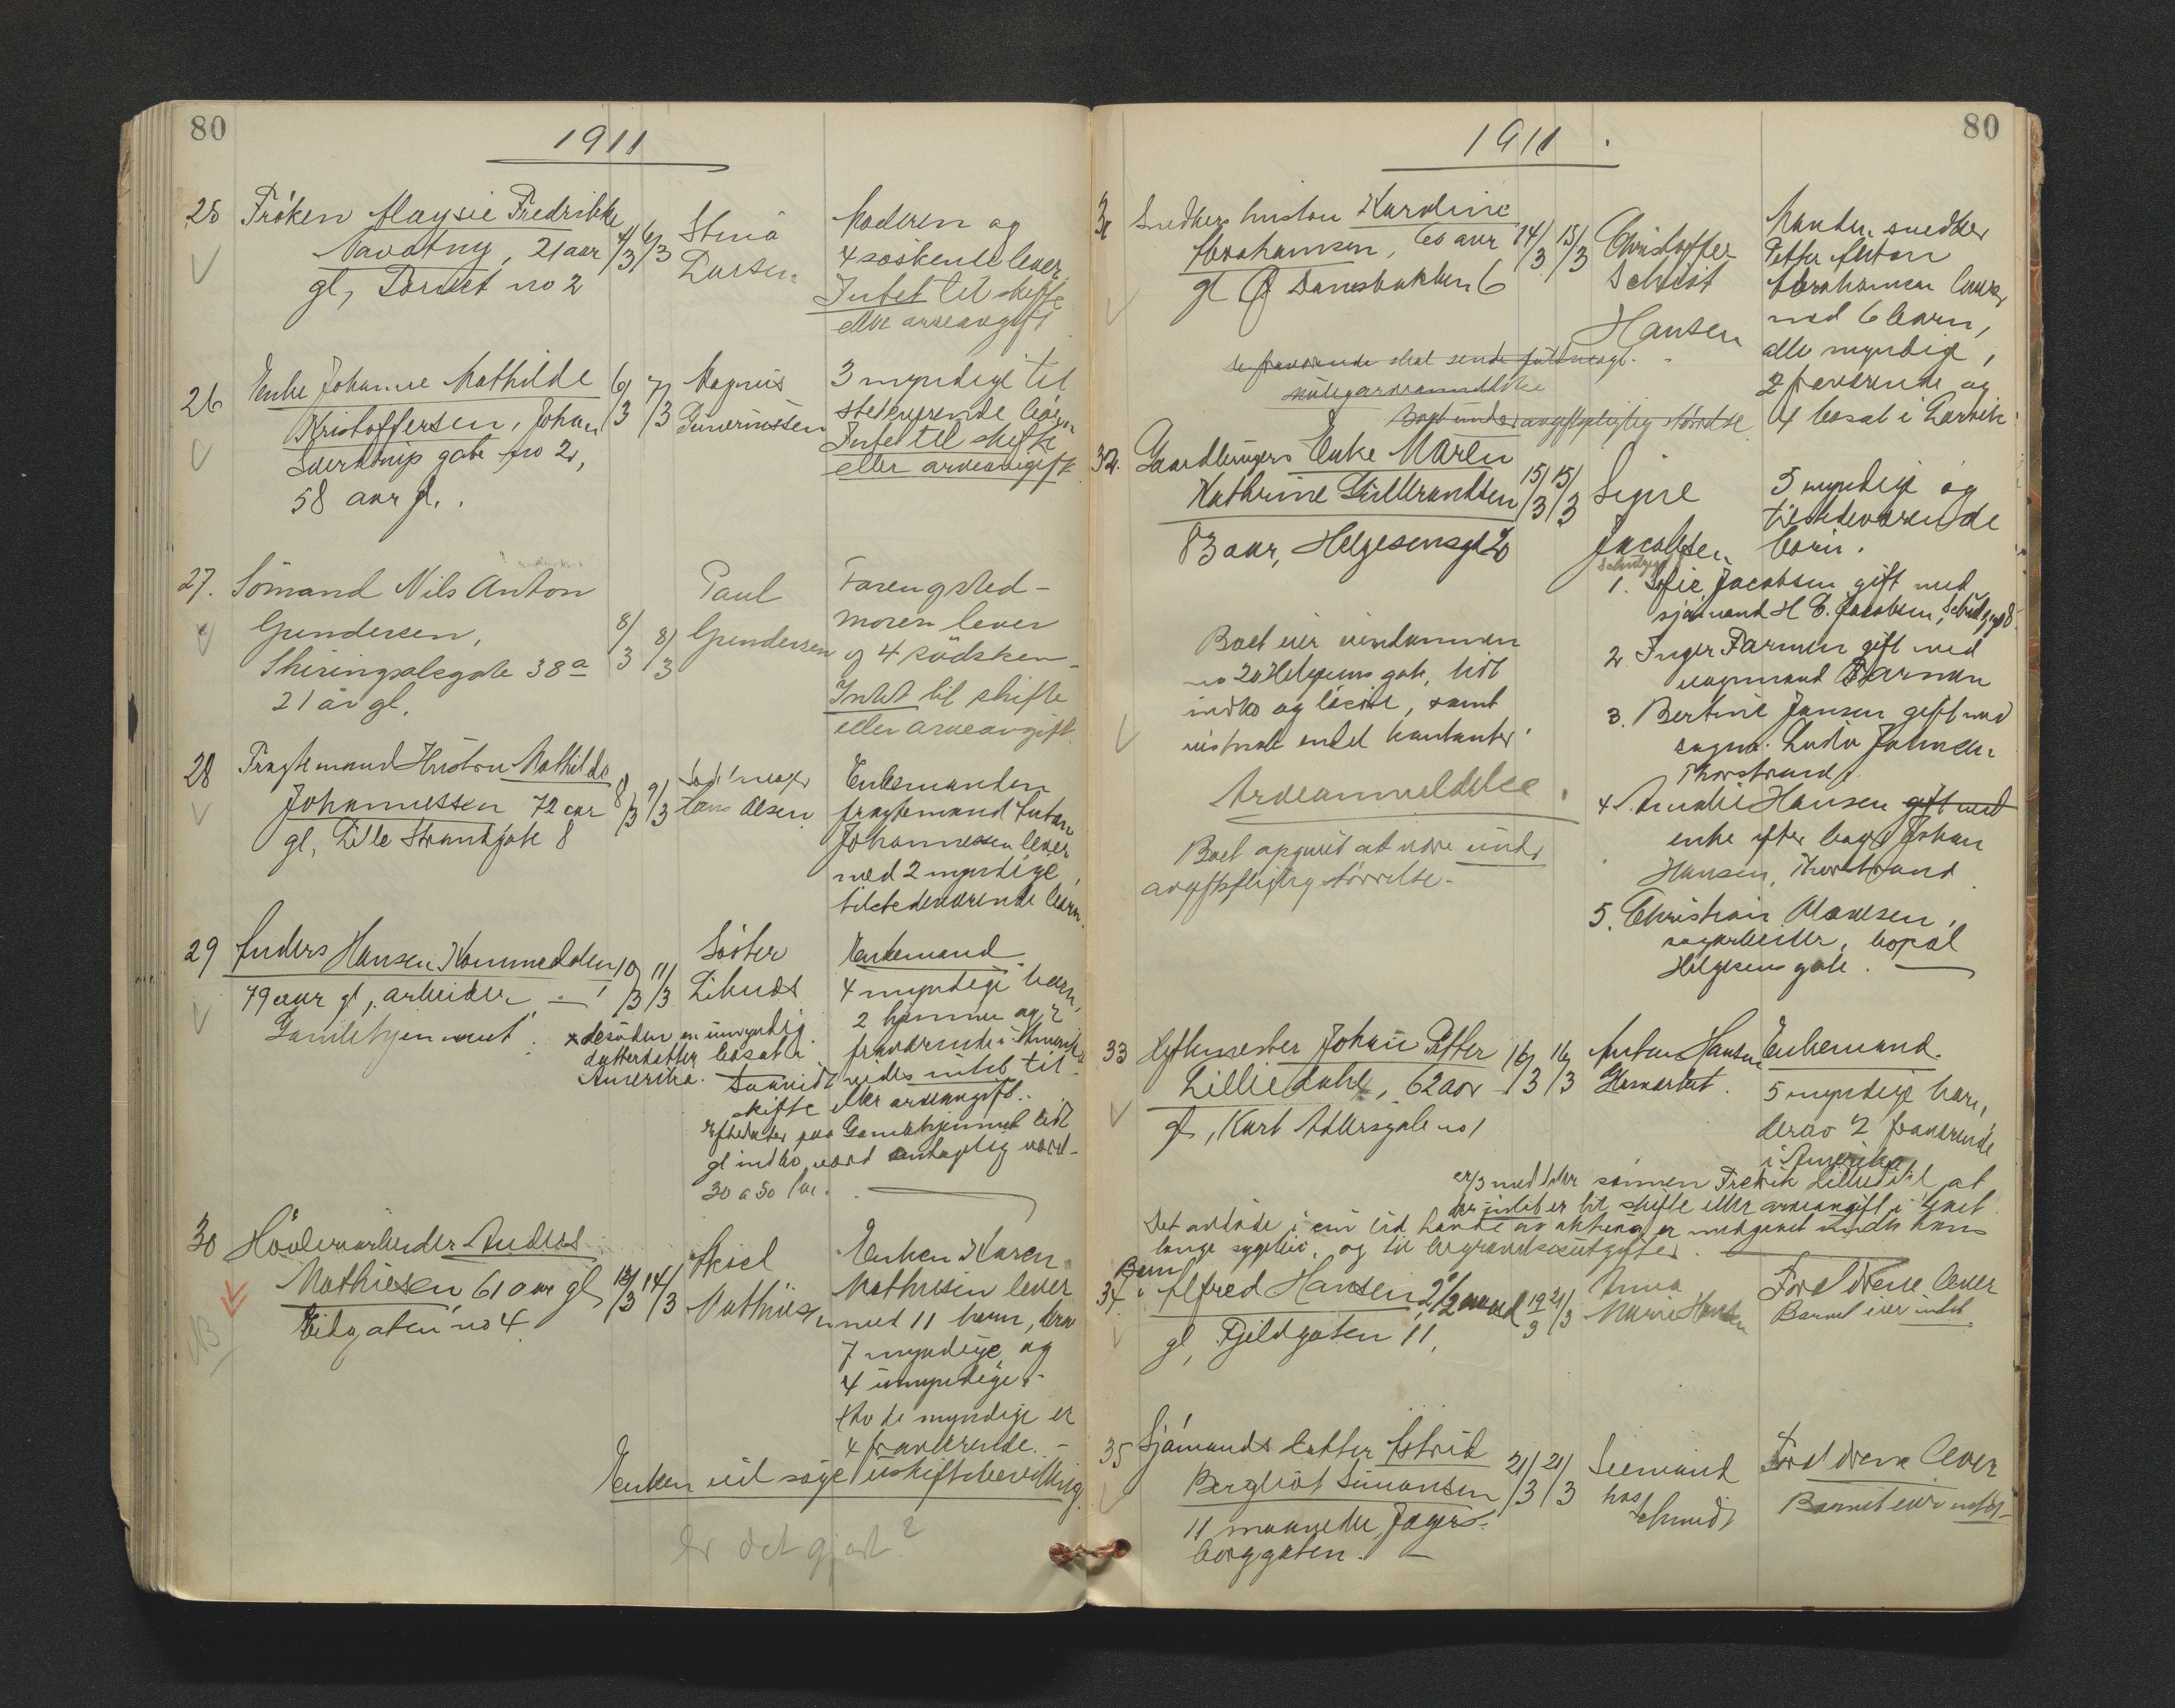 80
1911
25 Fröken Maysie Fredrikke
Navotny, 21 aar
gl, Torvet no 2
4/3 6/3
Stina
Larsen
Moderen og
4 söskende lever
Intet til skifte
eller arveavgift
26 Enke Johanne Mathilde
Kristoffersen, Johan
Sverdrups gate no 2,
58 aar gl.
6/3 7/3
Magnus
Guneriussen
3 myndige til
stedeværende börn
Intet til skifte
eller arveavgift
27. Sömand Nils Anton
Gundersen,
Skiringsalsgate 38a
21 år gl.
8/3 8/3
Paul
Gundersen
Faren og sted-
moren lever
og 4 södsken
Intet til skifte
eller arveavgift
28 Fragtemand Hustru Mathilde
Johannessen 72 aar
gl, Lille Strandgate 8
8/3 9/3
Hans Olsen
Enkemanden
fragtemand Anton
Johannessen lever
med 2 myndige,
tilstedeværende börn.
29 Anders Hansen Kommedalen
79 aar gl, arbeider
Gamlehjemmet.
10/3 11/3
Söster
Enkemand
4 myndige børn,
2 hjemme og 2
fraværende i Amerika
x desuden en umyndig
datterdatter bosat i
Amerika.
vides intet til
skifte eller arveavgift.
efterlater paa Gamlehjemmet lidt
gl indbo, værd antagelig værd
30 a 50 kr.
30 Hövleriarbeider Andreas
Mathiesen 61 aar gl
no 4
NB
13/3 14/3
Aksel
Mathiesen
Enken Karen
Mathisen lever
med 11 barn, hvorav
7 myndige og
4 umyndige.
Av de myndige er
4 fraværende.
Enken vil søge uskiftebevilling.
Er det gjort?
80
1911.
31 Snedkers hustru Karoline
Abrahamsen, 60 aar
gl Ø Dansbakken 6
14/3 15/3
Christoffer
Schiöt
Hansen
Manden snedker
Petter Anton
Abrahamsen lever
med 6 barn,
alle myndige,
2 fraværende og
4 bosat i Larvik
De fraværende skal sende fuldmagt.
Boet under avgiftspligtig størrelse
32. Gaardbrugers Enke Maren
Kathrine Gulbrandsen
83 aar, Helgesensgt 20
15/3 15/3
Signe
Jacobsen
5 myndige og
tilstedeværende
barn.
1. Sofie Jacobsen gift med
sjømand H C. Jacobsen,
2 Inger Farmen gift med
vognmand Farmen
3. Bertine Jansen gift med
Thorstrand.
4. Amalie Hansen gift med
enke efter Johan
Hansen, Thorstrand
5. Christian Olavesen,
sagarbeider, bopæl
Helgesens gate.
Boet eier eiendommen
no 20 Helgesens gate, lidt
indbo og løsøre, samt
endel kontanter.
Arveanmeldelse.
Boet opgivet at være under
avgiftspligtig størrelse.
33 Johan Petter
Lilliedahl, 62 aar
gl, Kurt Adlersgate no 1
16/3 16/3
Anton Hansen
Enkemand.
5 myndige barn,
derav 2 fraværende
i Amerika
22/3 meddeler sønnen Fredrik Lilliedal at
der intet er til skifte eller arveavgift i boet.
Det avdøde i sin tid havde av aktiva er medgaaet under hans
lange sygeleie, og til begravelsesutgifter.
34. Barn
Alfred Hansen, 2 1/2 maaned
gl, Fjeldgaten 11,
19/3 21/3
Anna
Marie Hansen
Forældrene lever
Barnet eier intet
35 Sjömands datter Astrid
Bergliot Simonsen
11 maaneder, Jegers-
borggaten.
21/3 21/3
hos
Schmidt
Forældrene lever
Barnet eier intet